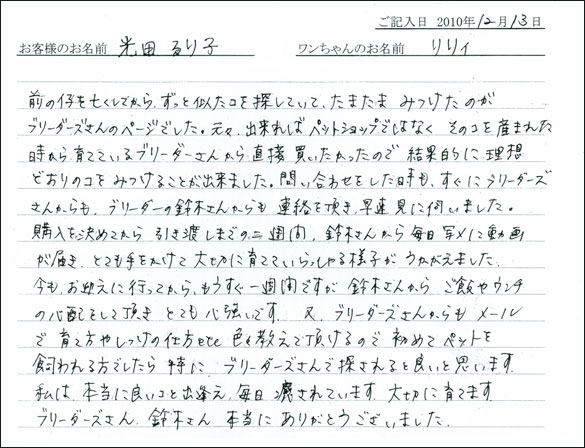 ご記入日 2010年12月13日
お客様のお名前 米田 るり子 ワンちゃんのお名前 リリィ
前の仔を亡くしてから、ずっと似たコを探していて、たまたま みつけたのが
ブリーダーズさんのページでした。元々、出来ればペットショップではなく そのコを産まれた
時から育てているブリーダーさんから直接買いたかったので 結果的に 理想
どおりのコを みつけることが出来ました。問い合わせをした時も、すぐにブリーダーズ
さんからも、ブリーダーの鈴木さんからも 連絡を頂き、早速見に伺いました。
購入を決めてから 引き渡しまでの二週間、鈴木さんから毎日写メに動画
が届き、とても手をかけて 大切に育てていらっしゃる様子が うかがえました。
今も、お迎えに行ってから、もうすぐ一週間ですが 鈴木さんから ご飯やウンチ
の心配をして頂き とても心強いです。又、ブリーダーズさんからも メール
で 育て方やしつけの仕方etc 色々教えて頂けるので 初めてペットを
飼われる方でしたら 特に、ブリーダーズさんで探されると良いと思います。
私は、本当に良いコと出逢え、毎日 癒されています。大切に 育てます。
ブリーダーズさん、鈴木さん 本当に ありがとうございました。